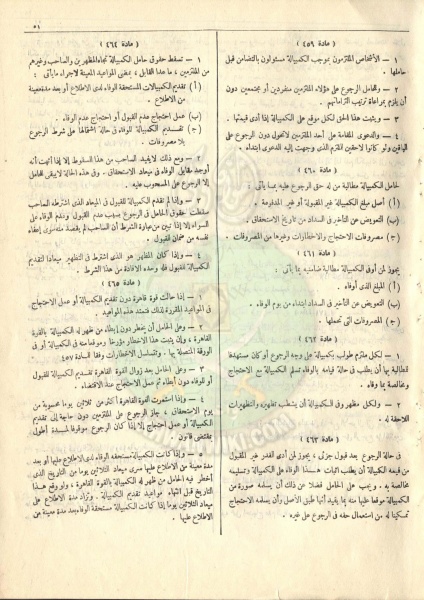 ٥١
( مادة ٤٥٩ )
١ — الأشخاص الملتزمون بموجب الكمبيالة مسئولون بالتضامن قبل
حاملها .
٢ — ولحامل الرجوع على هؤلاء الملتزمين منفردين أو مجتمعين دون
أن يلزم بمراعاة ترتيب التزاماتهم .
٣ — ويثبت هذا الحق لكل موقع على الكمبيالة إذا أدى قيمتها .
٤ — والدعوى المقامة على أحد الملتزمين لا تحول دون الرجوع على
الباقين ولو كانوا لاحقين للملتزم الذي وجهت إليه الدعوى ابتداء .
( مادة ٤٦٠ )
لحامل الكمبيالة مطالبة من له حق الرجوع عليه بما يأتى :
(أ) أصل مبلغ الكمبيالة غير المقبولة أو غير المدفوعة .
(ب) التعويض عن التأخير فى السداد من تاريخ الاستحقاق .
(ج) مصروفات الاحتجاج والاخطارات وغيرها من المصروفات .
( مادة ٤٦١ )
يجوز لمن أوفى الكمبيالة مطالبة ضامنيه بما يأتى :
(أ) المبلغ الذى أوفاه .
(ب) التعويض عن التأخير فى السداد ابتداء من يوم الوفاء .
(ج) المصروفات التى تحملها .
( مادة ٤٦٢ )
١ — لكل ملتزم طولب بكمبيالة على وجه الرجوع أو كان مستهدفا
للمطالبة بها أن يطلب فى حالة قيامه بالوفاء تسلم الكمبيالة مع الاحتجاج
ومخالصة بما وفاه .
٢ — ولكل مظهر وفى الكمبيالة أن يشطب تظهيره والتظهيرات
اللاحقة له .
( مادة ٤٦٣ )
فى حالة الرجوع بعد قبول جزئى ، يجوز لمن أدى القدر غير المقبول
من قيمة الكمبيالة أن يطلب اثبات هذا الوفاء على الكمبيالة وتسليمه
مخالصة به . ويجب على الحامل فضلا عن ذلك أن يسلمه صورة من
الكمبيالة موقعا عليها منه بما يفيد أنها طبق الأصل وأن يسلمه الاحتجاج
تمكينا له من استعمال حقه فى الرجوع على غيره .
( مادة ٤٦٤ )
١ — تسقط حقوق حامل الكمبيالة تجاه المظهرين والساحب وغيرهم
من الملتزمين ، ما عدا القابل ، بمضى المواعيد المعينة لاجراء ما يأتى :
(أ) تقديم الكمبيالات المستحقة الوفاء لدى الاطلاع أو بعد مدة معينة
من الاطلاع .
(ب) عمل احتجاج عدم القبول أو احتجاج عدم الوفاء .
(ج) تقديم الكمبيالة للوفاء فى حالة اشتمالها على شرط الرجوع
بلا مصروفات .
٢ — ومع ذلك لا يفيد الساحب من هذا السقوط إلا إذا أثبت أنه
أوجد مقابل الوفاء فى ميعاد الاستحقاق . وفى هذه الحالة لا يبقى للحامل
إلا الرجوع على المسحوب عليه .
٣ — وإذا لم تقدم الكمبيالة للقبول فى الميعاد الذى اشترطه الساحب
سقطت حقوق الحامل فى الرجوع بسبب عدم القبول وعدم الوفاء على
السواء إلا إذا تبين من عبارة الشرط أن الساحب لم يقصد منه سوى إعفاء
نفسه من ضمان القبول .
٤ — وإذا كان المظهر هو الذى اشترط فى التظهير ميعادا لتقديم
الكمبيالة للقبول فله وحده الافادة من هذا الشرط .
( مادة ٤٦٥ )
١ — إذا حالت قوة قاهرة دون تقديم الكمبيالة أو عمل الاحتجاج
فى المواعيد المقررة لذلك امتدت هذه المواعيد .
٢ — وعلى الحامل أن يخطر دون إبطاء من ظهر له الكمبيالة بالقوة
القاهرة ، وأن يثبت هذا الاخطار مؤرخا وموقعا منه فى الكمبيالة أو فى
الورقة المتصلة بها . وتتسلسل الاخطارات وفقا للمادة ٤٥٧
٣ — وعلى الحامل بعد زوال القوة القاهرة تقديم الكمبيالة للقبول
أو للوفاء دون إبطاء ثم عمل الاحتجاج عند الاقتضاء .
٤ — وإذا استمرت القوة القاهرة أكثر من ثلاثين يوما محسوبة من
يوم الاستحقاق ، جاز الرجوع على الملتزمين دون حاجة إلى تقديم
الكمبيالة أو عمل احتجاج إلا إذا كان الرجوع موقوفا لمدة أطول
بمقتضى قانون .
٥ — وإذا كانت الكمبيالة مستحقة الوفاء لدى الاطلاع عليها أو بعد
مدة معينة من الاطلاع عليها سرى ميعاد الثلاثين يوما من التاريخ الذى
أخطر فيه الحامل من ظهر له الكمبيالة بالقوة القاهرة ، ولو وقع هذا
التاريخ قبل انتهاء مواعيد تقديم الكمبيالة . وتزاد مدة الاطلاع على
ميعاد الثلاثين يوما إذا كانت الكمبيالة مستحقة الوفاء بعد مدة معينة من
الاطلاع عليها .